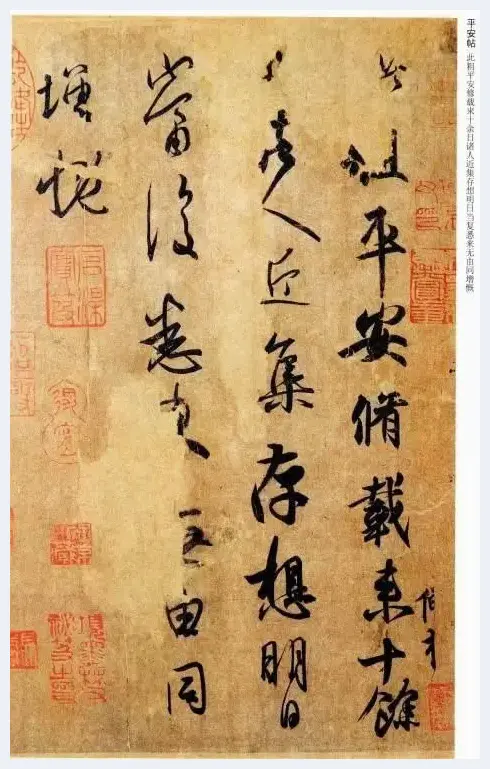 平安帖 此粗平安修载来十余日诸人近集存想明日当复悉来无由同增慨
此粗平安脩載来十餘
日諸人近集存想明日
當復悉来无由同
增慨